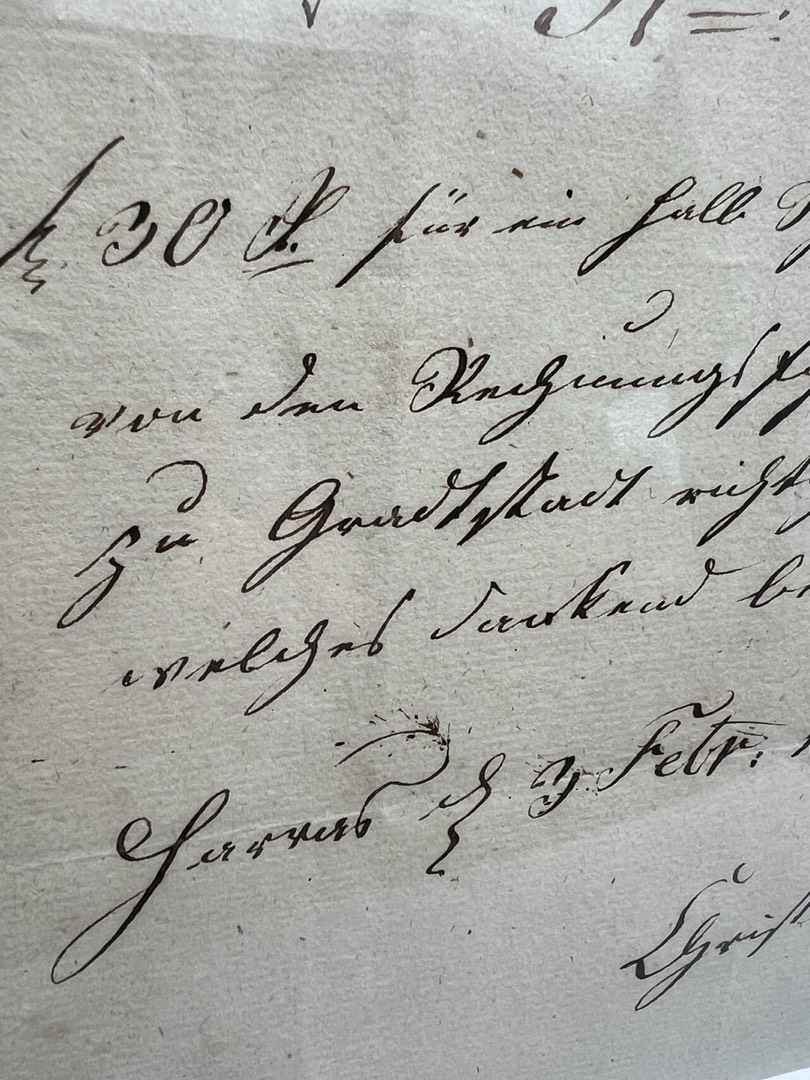 30 für ein halb
von den Rechnungsf
zu Gradtstadt richt
welches dankend be
Harras d 3 Febr:
Christ